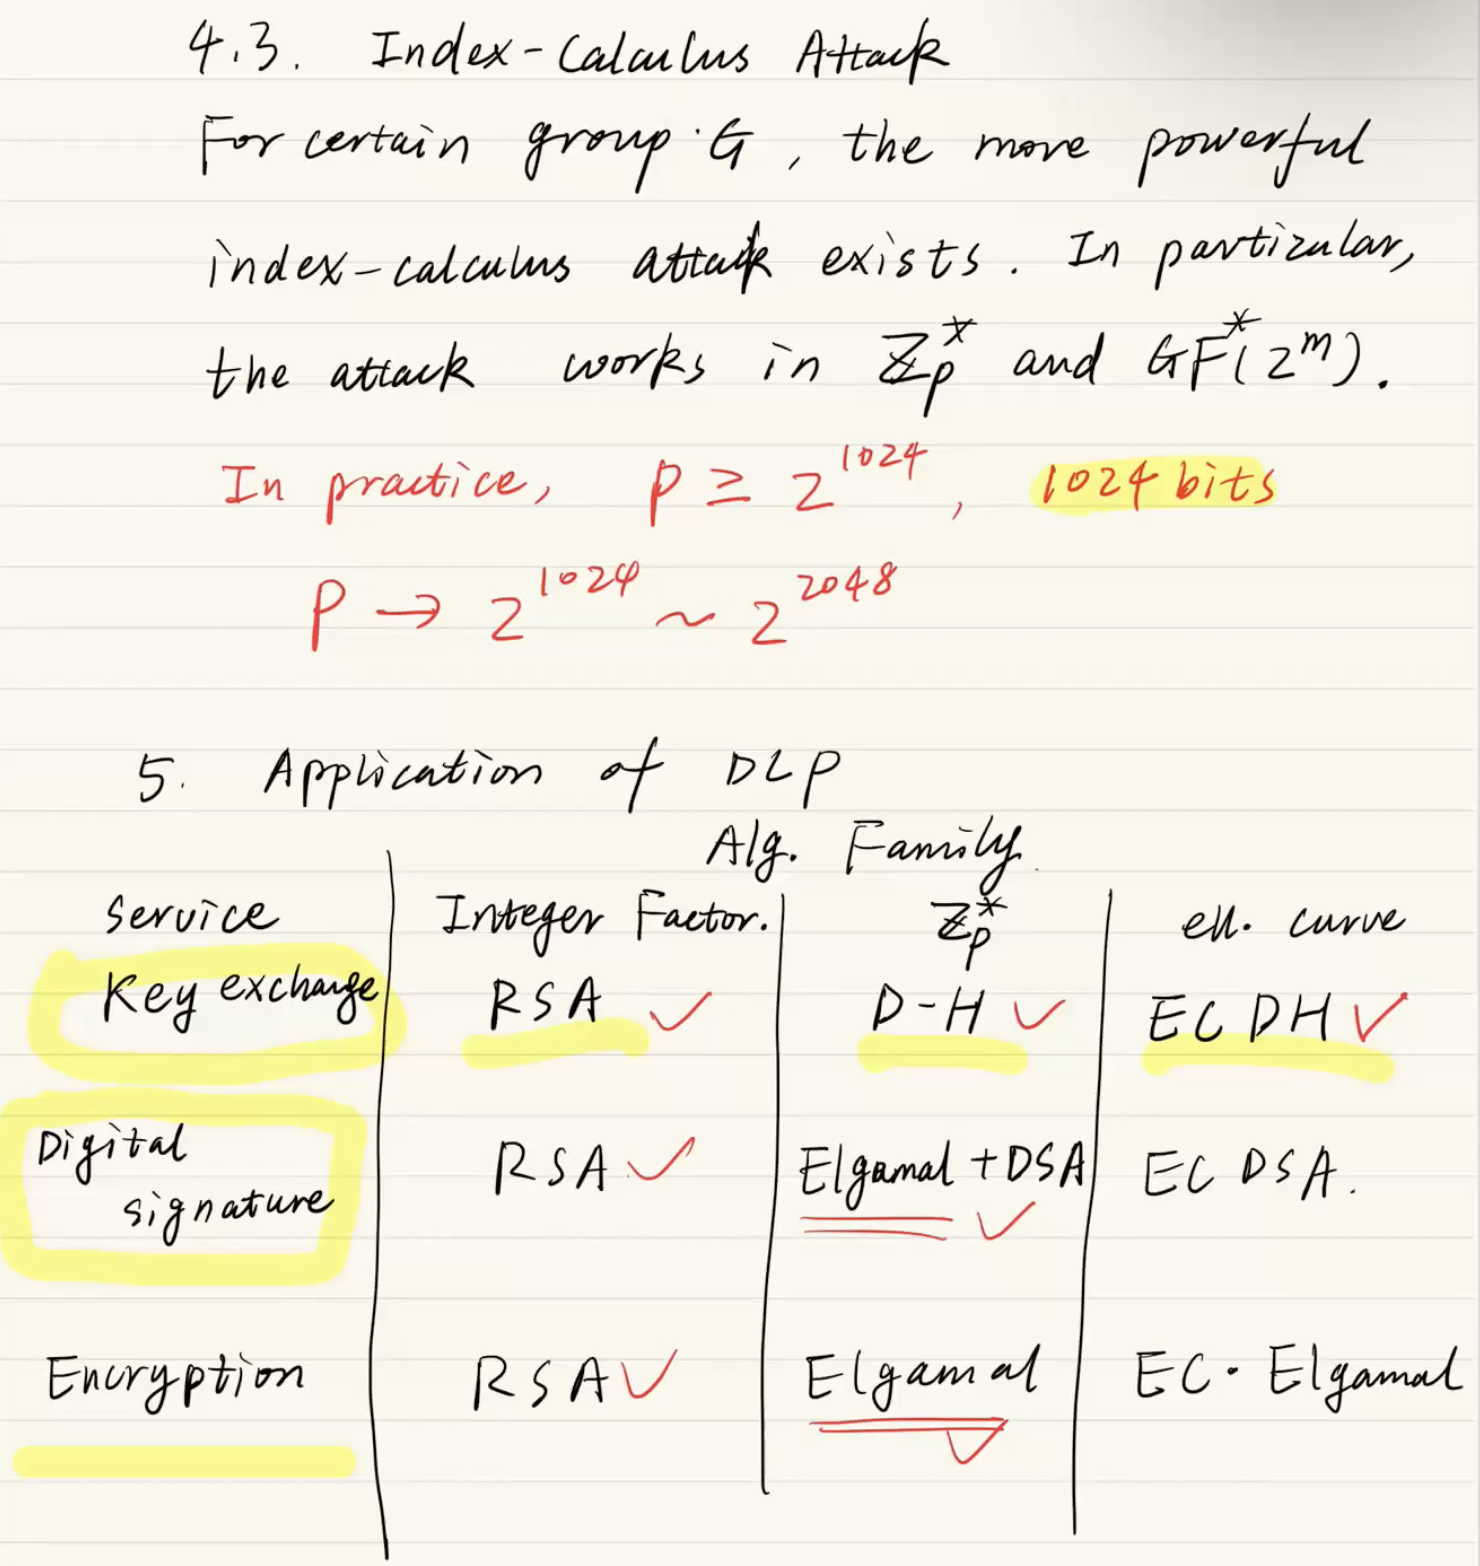 4.3. Index-Calculus Attack
For certain group G, the more powerful
index-calculus attack exists. In particular,
the attack works in ℤₚ* and GF*(2ᵐ).
In practice, p ≥ 2¹⁰²⁴, 1024 bits
P → 2¹⁰²⁴ ~ 2²⁰⁴⁸
5. Application of DLP
Alg. Family.
Service Integer Factor. ℤₚ* ell. curve
Key exchange RSA ✓ D-H ✓ ECDH ✓
Digital
signature RSA ✓ Elgamal + DSA ✓ EC DSA.
Encryption RSA ✓ Elgamal ✓ EC. Elgamal